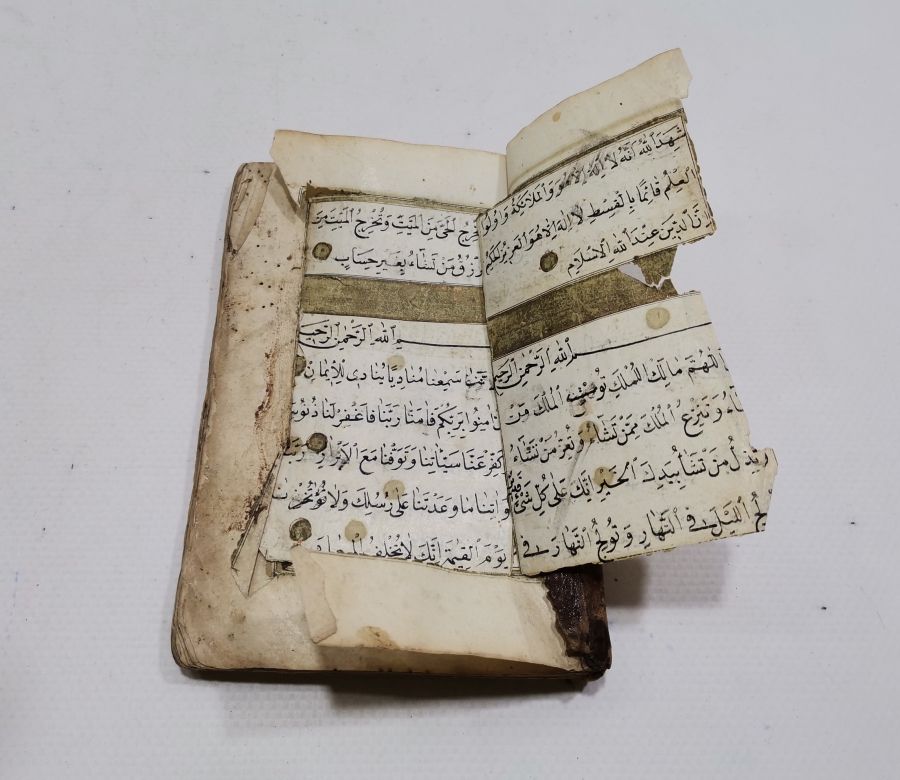 شَهِدَ اللهُ اَنَّهُ لَا اِلٰهَ اِلَّا هُوَ وَالْمَلَائِكَةُ وَاُولُوا
الْعِلْمِ قَائِمًا بِالْقِسْطِ لَا اِلٰهَ اِلَّا هُوَ الْعَزِيزُ الْحَكِيمُ
اِنَّ الدِّينَ عِنْدَ اللهِ الْاِسْلَامُ
اللهِ الرَّحْمٰنِ الرَّحِيمِ
اللّٰهُمَّ مَالِكَ الْمُلْكِ تُؤْتِي الْمُلْكَ مَنْ
وَتَنْزِعُ الْمُلْكَ مِمَّنْ تَشَاءُ وَتُعِزُّ مَنْ تَشَاءُ
وَتُذِلُّ مَنْ تَشَاءُ بِيَدِكَ الْخَيْرُ اِنَّكَ عَلٰى كُلِّ شَيْءٍ قَدِيرٌ
تُولِجُ اللَّيْلَ فِي النَّهَارِ وَتُولِجُ النَّهَارَ فِي
تُخْرِجُ الْحَيَّ مِنَ الْمَيِّتِ وَتُخْرِجُ الْمَيِّتَ مِنَ
تَرْزُقُ مَنْ تَشَاءُ بِغَيْرِ حِسَابٍ
اللهِ الرَّحْمٰنِ الرَّحِيمِ
سَمِعْنَا مُنَادِيًا يُنَادِي لِلْاِيمَانِ
اٰمِنُوا بِرَبِّكُمْ فَاٰمَنَّا رَبَّنَا فَاغْفِرْ لَنَا ذُنُوبَنَا
كَفِّرْ عَنَّا سَيِّاٰتِنَا وَتَوَفَّنَا مَعَ الْاَبْرَارِ
وَاٰتِنَا مَا وَعَدْتَنَا عَلٰى رُسُلِكَ وَلَا تُخْزِنَا
يَوْمَ الْقِيٰمَةِ اِنَّكَ لَا تُخْلِفُ الْمِيعَادَ